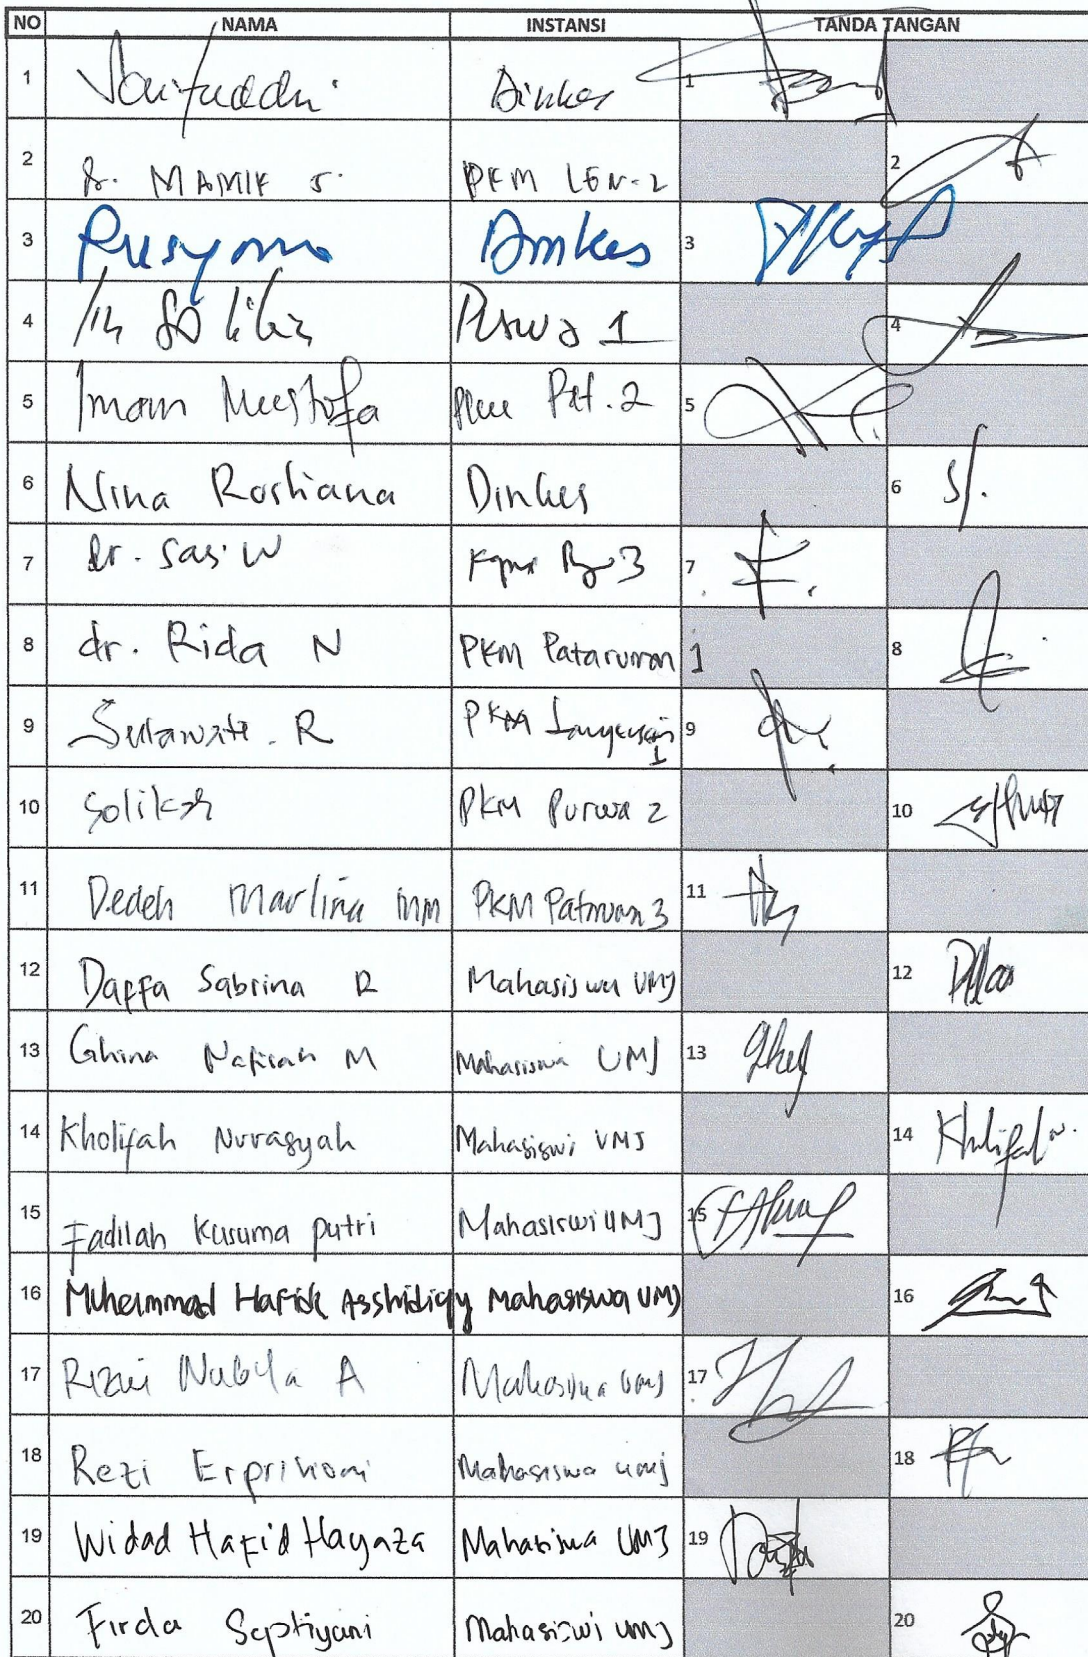 NO NAMA INSTANSI TANDA TANGAN
1 Saifuddin Dinkes 1
2 dr. MAMIK S. PKM LEN-2 2
3 Rusyono Dinkes 3
4 Iin Solikin Purwa 1 4
5 Imam Mustofa PKM Pat. 2 5
6 Nina Roshana Dinkes 6
7 dr. Sasi W 3 7
8 dr. Rida N PKM Pataruman 1 8
9 R PKM Langensari 1 9
10 Solikah PKM Purwa 2 10
11 Dedeh Marlina mm PKM Patruman 3 11
12 Daffa Sabrina R Mahasiswa UMJ 12
13 Ghina Nafisah M Mahasiswa UMJ 13
14 Kholifah Nurasyah Mahasiswi UMJ 14 Kholifah N.
15 Fadilah Kusuma Putri Mahasiswi UMJ 15
16 Muhammad Hafidk Asshidiqy Mahasiswa UMJ 16
17 Rizki Nabyla A Mahasiswa UMJ 17
18 Rezi Erprihani Mahasiswa UMJ 18
19 Widad Hafid Hayaza Mahasiswa UMJ 19
20 Firda Septiyani Mahasiswi UMJ 20